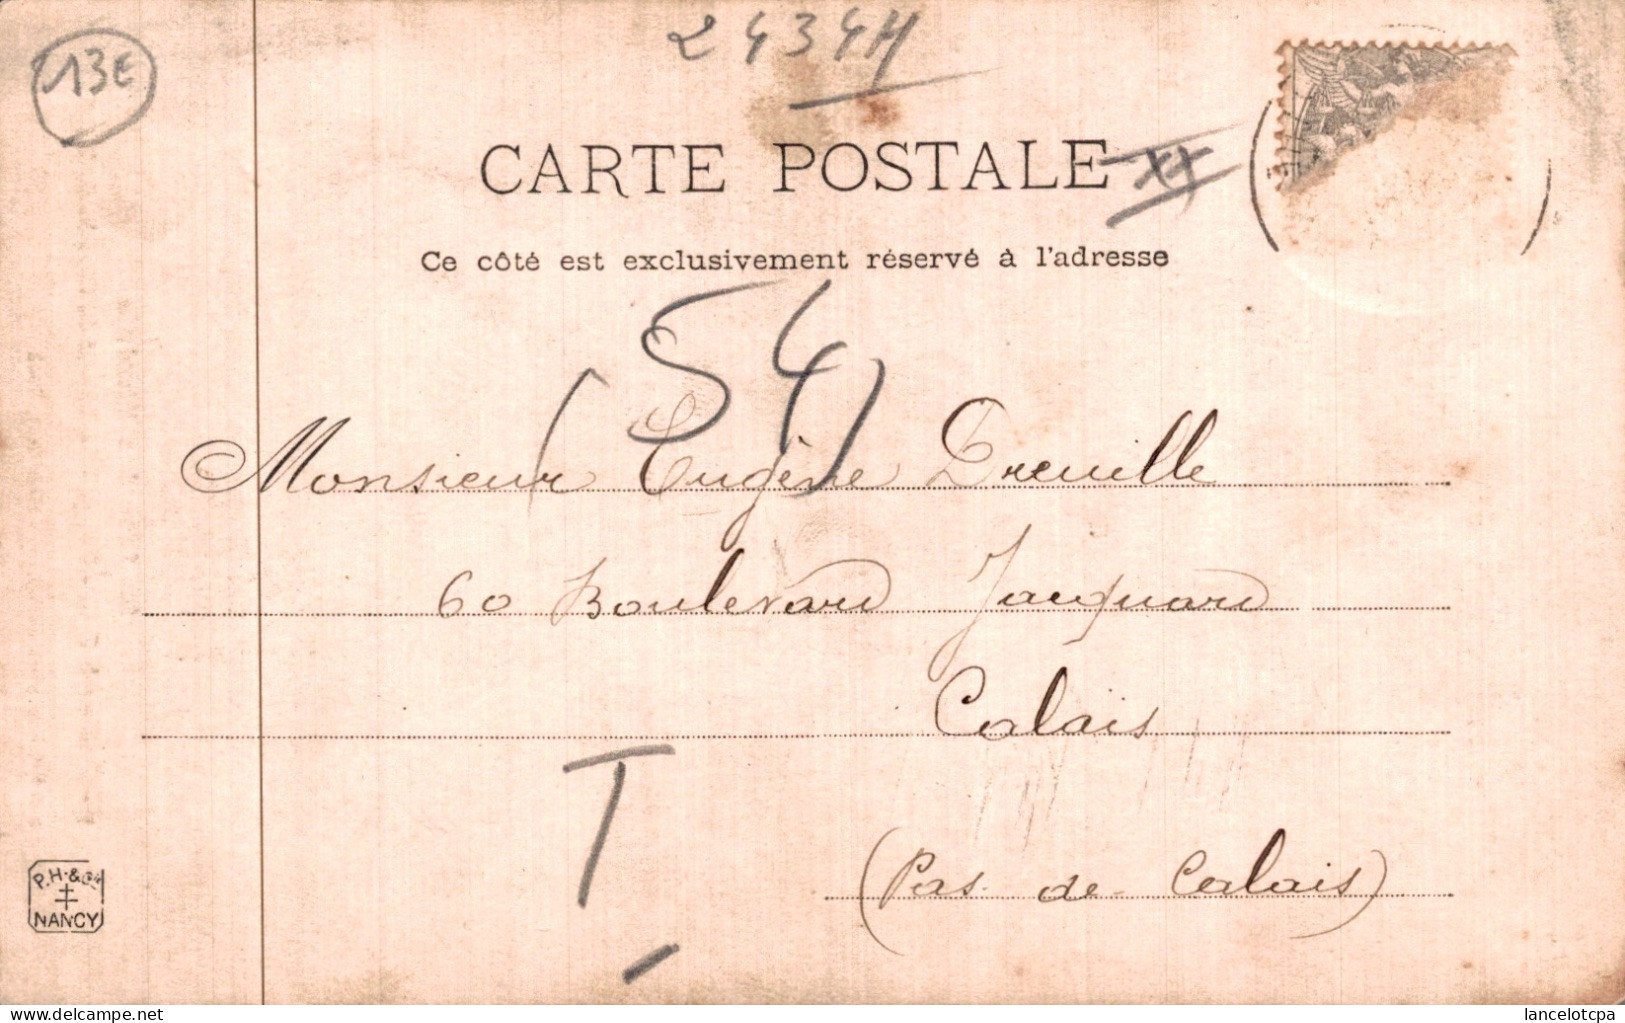 13E
2434H
CARTE POSTALE xx
Ce côté est exclusivement réservé à l'adresse
(54)
Monsieur Eugène Dreuille
60 Boulevard Jacquard
Calais
T
(Pas-de-Calais)
P.H.&Cie
NANCY
www.delcampe.net
lancelotcpa